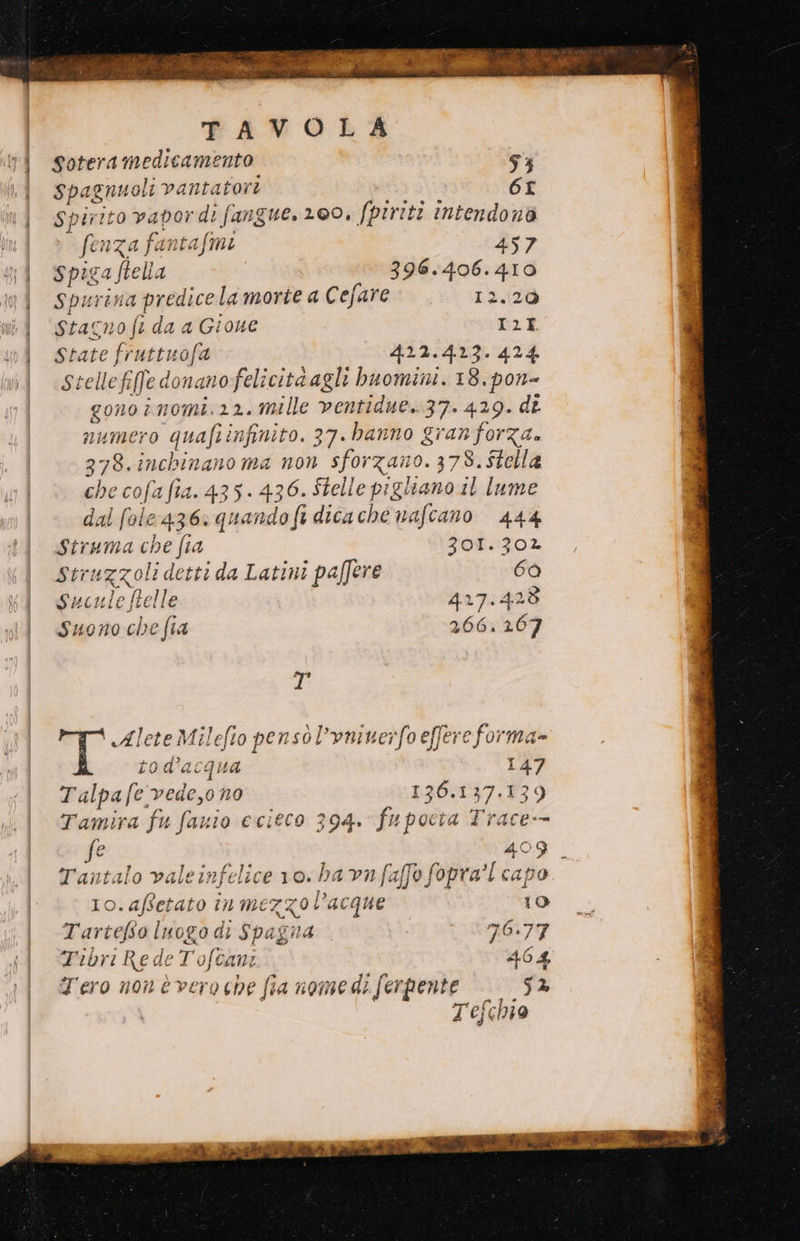 TAVOLA
Sotera medicamento 53
Spagnuoli vantatori 61
Spirito vapor di ſangue. 200. ſpiriti intendono
ſenza fantaſmi 457
Spiga ſtella 396.406.410
Spurina predice la morte a Ceſare 12.20
Stagno ſi da a Gioue 121
State fruttuoſa 422.423.424
Stelle fiſſe donano felicità agli huomini. 18. pon-
gono i nomi. 22. mille ventidue. 37. 429. di
numero quaſi infinito. 37. hanno gran forza.
378. inchinano ma non sforzano. 378. Stella
che coſa ſia. 435. 436. Stelle pigliano il lume
dal ſole 436. quando ſi dica che naſcano 444
Struma che ſia 301.302
Struzzoli detti da Latini paſſere 60
Sucule ſtelle 427.428
Suono che ſia 266.267
T
TAlete Mileſio pensò l'vniuerſo eſſere forma-
to d'acqua 147
Talpa ſe vede, o no 136.137.139
Tamira fu ſauio e cieco 394. fu poeta Trace-
ſe 409
Tantalo vale infelice 10. ha vn ſaſſo ſopra'l capo
10. aſſetato in mezzo l'acque 10
Tarteſſo luogo di Spagna 76.77
Tibri Re de Toſcani 464
Tero non è vero che ſia nome di ſerpente 52
Teſchio